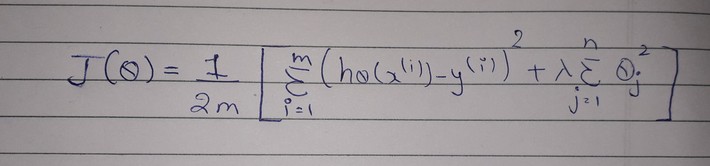 J(θ) = 1/2m [ m∑i=1 (hθ(x⁽ⁱ⁾) - y⁽ⁱ⁾)² + λ n∑j=1 θj² ]